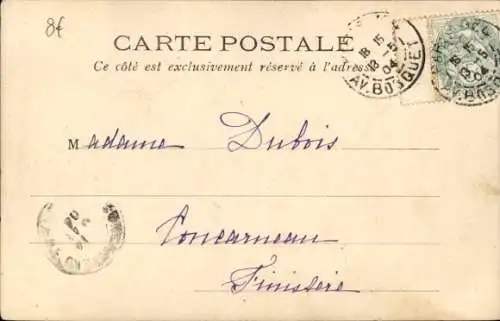 8f
CARTE POSTALE
Ce côté est exclusivement réservé à l'adresse
18 15
13 -5
04
AV. BOSQUET
Madame Dubois
Concarneau
Finistère